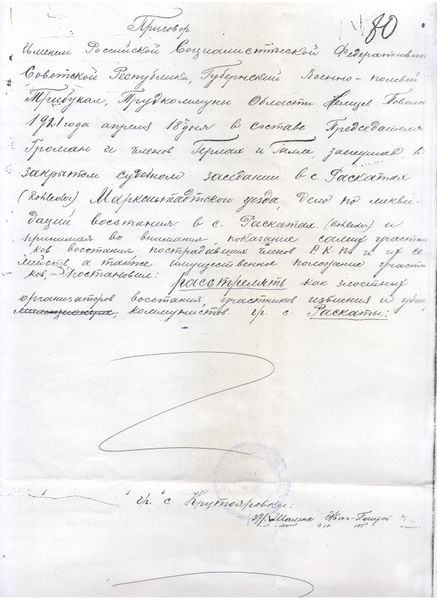 Приговор
№ 80
Именем Российской Социалистической Федеративной
Советской Республики, Губернский Военно-полевой
Трибунал, Трудкоммуны Области Немцев Поволж
1921 года апреля 18 дня в составе Председателя
Громан и членов Герман и Гамс, заслушав в
закрытом судебном заседании в с. Раскатах
(Rohleder) Марксштадтского уезда дело по ликви-
дации восстания в с. Раскатах (Rohleder) и
принимая во внимание показание самих участни-
ков восстания пострадавших членов Р.К.П. и их се-
мейств, а также имущественное положение участни-
ков - Постановил: расстрелять как злостных
организаторов восстания, участников избиения и убий
коммунистов. гр. с. Раскаты:
"гр." с Крутояровки: